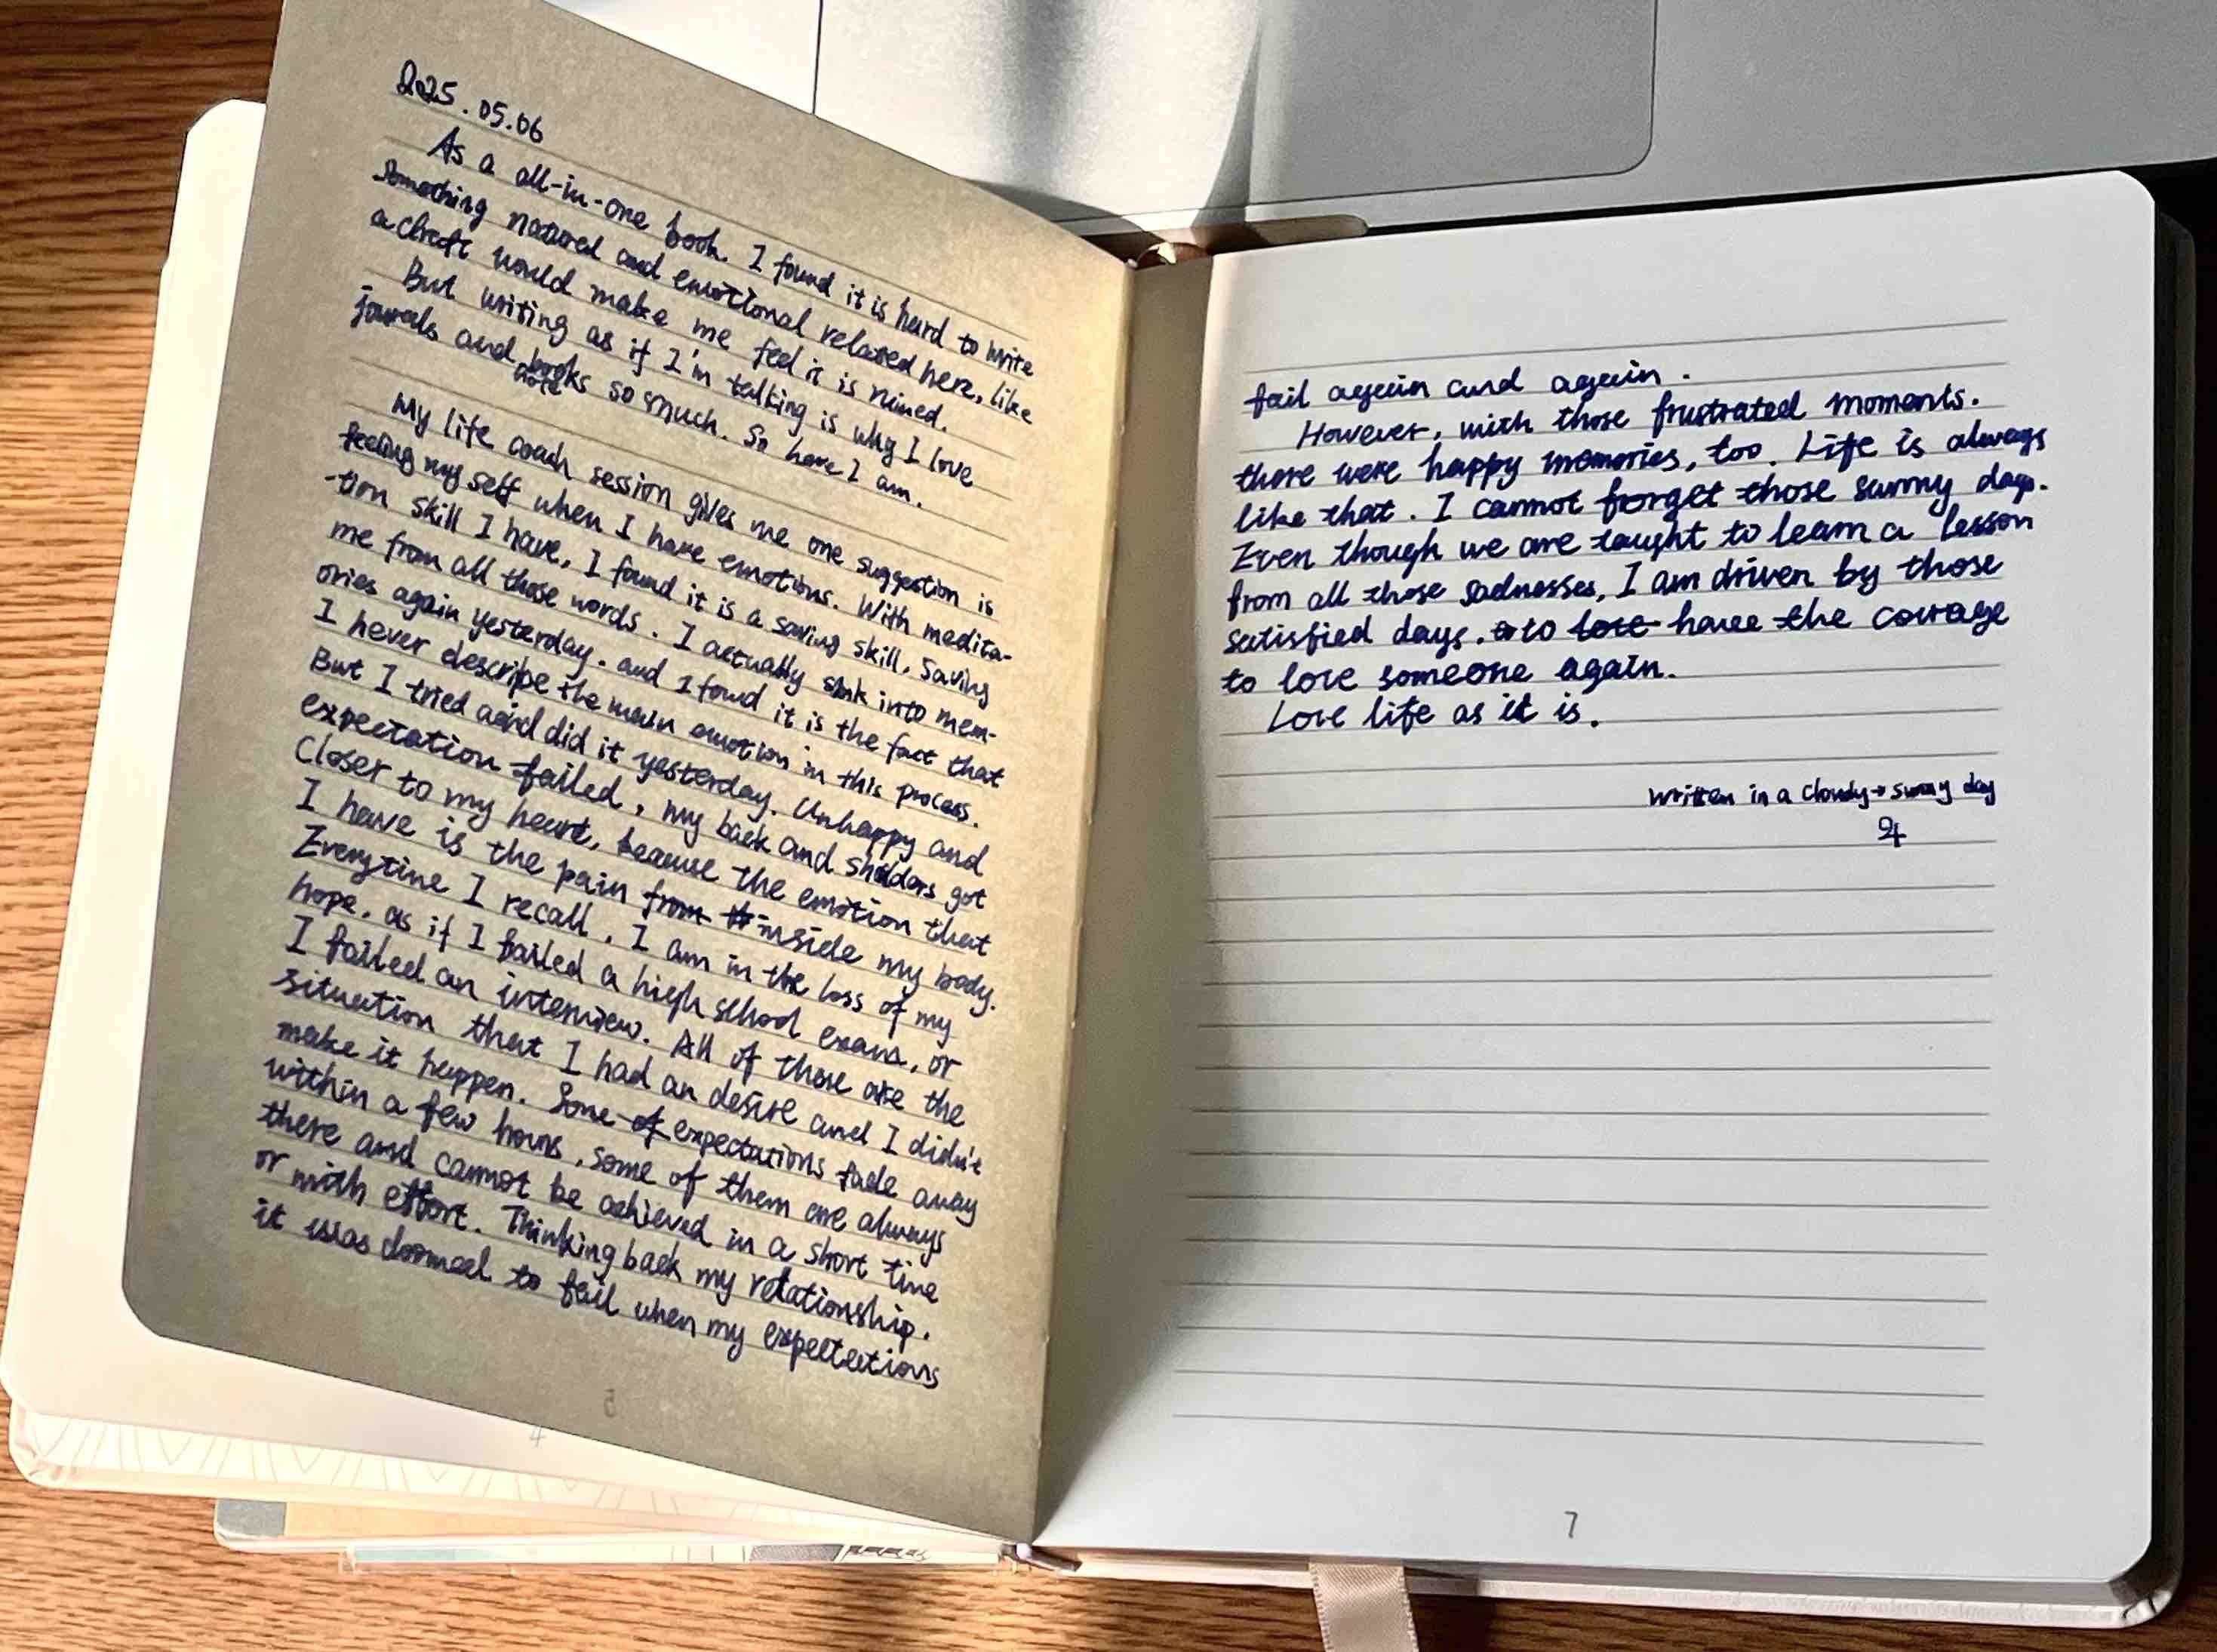 2025.05.06
As a all-in-one book. I found it is hard to write
Something natural and emotional related here, like
a draft would make me feel it is ruined.
But writing as if I'm talking is why I love
jourals and books so much. So here I am.
note
My life coach session gives me one suggestion is
feeling my self when I have emotions. With medita-
-tion skill I have, I found it is a saving skill. Saving
me from all those words. I actually sink into mem-
ories again yesterday. and I found it is the fact that
I never describe the main emotion in this process.
But I tried and did it yesterday. Unhappy and
expectation failed, my back and sholders got
Closer to my heart, because the emotion that
I have is the pain from inside my body.
Everytime I recall, I am in the loss of my
hope. as if I failed a high school exam, or
I failed an interview. All of those are the
situation that I had an desire and I didn't
make it happen. Some of expectations fade away
within a few hours, some of them are always
there and cannot be achieved in a short time
or with effort. Thinking back my relationship.
it was doomed to fail when my expectations
fail again and again.
However, with those frustrated moments.
there were happy memories, too. Life is always
like that. I cannot forget those sunny days.
Even though we are taught to learn a lesson
from all those sadnesses, I am driven by those
satisfied days. to love have the courage
to love someone again.
Love life as it is.
Written in a cloudy → sunny day
5
4
7